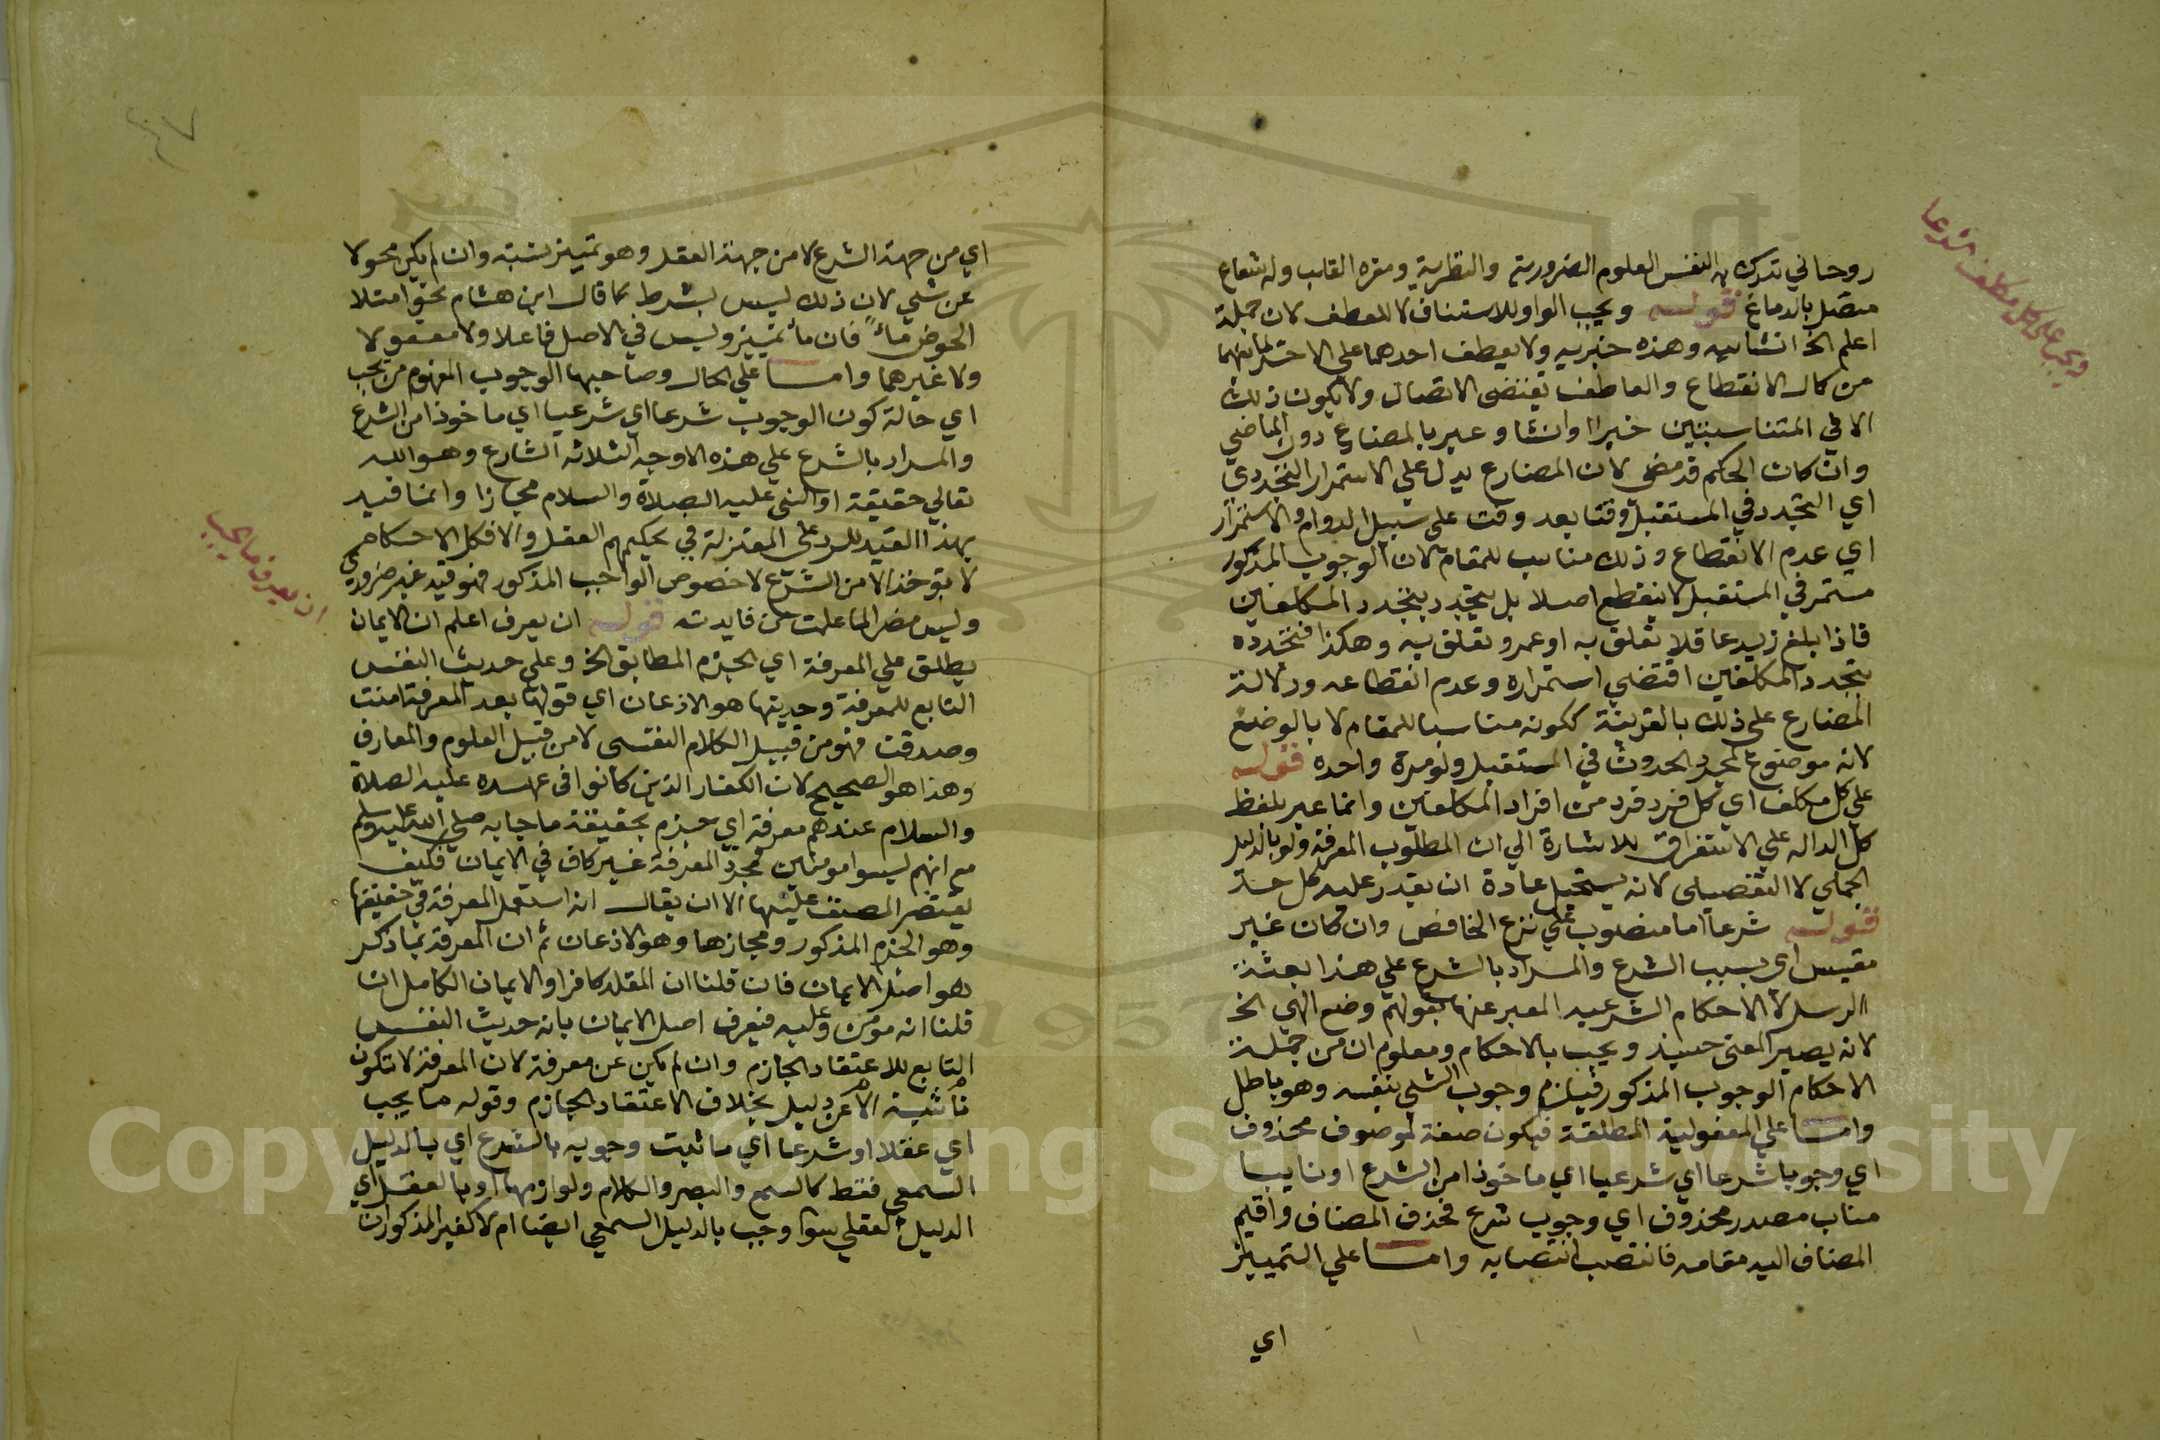 روحاني تدرك به النفس العلوم الضرورية والنظرية ومقره القلب وله شعاع
متصل بالدماغ قوله ويجب الواو للاستئناف لا للعطف لان جملة
اعلم الخ انشائيه وهذه خبريه ولا يعطف احدهما على الاخر لما بينهما
من كمال الانقطاع والعاطف يقتضى الاتصال ولا يكون ذلك
الا في المتناسبتين خبرا او انشا وعبر بالمضارع دون الماضي
وان كان الحكم قد مضى لان المضارع يدل علي الاستمرار التجددي
اي التجدد في المستقبل وقتا بعد وقت على سبيل الدوام والاستمرار
اي عدم الانقطاع وذلك مناسب للمقام لان الوجوب المذكور
مستمر في المستقبل لا ينقطع اصلا بل يتجدد بتجدد المكلفين
فاذا بلغ زيد عاقلا تعلق به او عمرو تعلق به وهكذا فتجدده
بتجدد المكلفين اقتضي استمراره وعدم انقطاعه ودلالة
المضارع على ذلك بالقرينة ككونه مناسبا للمقام لا بالوضع
لانه موضوع لمجرد الحدوث في المستقبل ولو مرة واحده قوله
علي كل مكلف اي كل فرد فرد من افراد المكلفين وانما عبر بلفظ
كل الداله علي الاستغراق للاشارة الي ان المطلوب المعرفة ولو بالدليل
الجملي لا التفصيلى لانه يستحيل عادة ان يقدر عليه كل احد
قوله شرعا اما منصوب على نزع الخافض وان كان غير
مقيس اى بسبب الشرع والمراد بالشرع علي هذا بعثة
الرسل لا الاحكام الشرعيه المعبر عنها بقولهم وضع الهي الخ
لانه يصير المعنى حينيذ ويجب بالاحكام ومعلوم ان من جملة
الاحكام الوجوب المذكور فيلزم وجوب الشي بنفسه وهو باطل
واما علي المفعولية المطلقة فيكون صفة لموصوف محذوف
اي وجوبا شرعا اي شرعيا اي ماخوذا من الشرع او نايبا
مناب مصدر محذوف اي وجوب شرع فحذف المضاف واقيم
المضاف اليه مقامه فانتصب انتصابه واما علي التمييز
اي
ويجب على كل مكلف شرعا
اي من جهة الشرع لا من جهة العقل وهو تمييز نسبة وان لم يكن محولا
عن شي لان ذلك ليس بشرط كما قال ابن هشام نحو امتلا
الحوض ماءً فان ماء تمييز وليس في الاصل فاعلا ولا مفعولا
ولا غيرهما واما علي الحال وصاحبها الوجوب المفهوم من يجب
اي حالة كون الوجوب شرعا اي شرعيا اي ماخوذا من الشرع
والمراد بالشرع علي هذه الاوجه الثلاثه الشارع وهو الله
تعالي حقيقة او النبى عليه الصلاة والسلام مجازا وانما قيد
بهذا القيد للرد على المعتزلة في تحكيمهم العقل والا فكل الاحكام
لا تؤخذ الا من الشرع لا خصوص الواجب المذكور فهو قيد غير ضروري
وليس مضرا لما علمت من فايدته قوله ان يعرف اعلم ان الايمان
يطلق علي المعرفة اي الجزم المطابق الخ وعلى حديث النفس
التابع للمعرفة وحديثها هو الاذعان اي قولها بعد المعرفة امنت
وصدقت فهو من قبيل الكلام النفسى لا من قبيل العلوم والمعارف
وهذا هو الصحيح لان الكفار الذين كانوا في عهده عليه الصلاة
والسلام عندهم معرفة اي جزم بحقيقة ما جا به صلي الله عليه وسلم
مع انهم ليسوا مومنين فمجرد المعرفة غير كاف في الايمان فكيف
يقتصر المصنف عليها الا ان يقال انه استعمل المعرفة في حقيقتها
وهو الجزم المذكور ومجازها وهو الاذعان ثم ان المعرفة بما ذكر
هو اصل الايمان فان قلنا ان المقلد كافر او الايمان الكامل ان
قلنا انه مومن وعليه فيعرف اصل الايمان بانه حديث النفس
التابع للاعتقاد الجازم وان لم يكن عن معرفة لان المعرفة لا تكون
ناشية الا عن دليل بخلاف الاعتقاد الجازم وقوله ما يجب
اي عقلا او شرعا اي ما ثبت وجوبه بالشرع اي بالدليل
السمعى فقط كالسمع والبصر والكلام ولوازمها او بالعقل اي
الدليل العقلي سوا وجب بالدليل السمعي ايضا ام لا كغير المذكوران
ان يعرف ما يجب